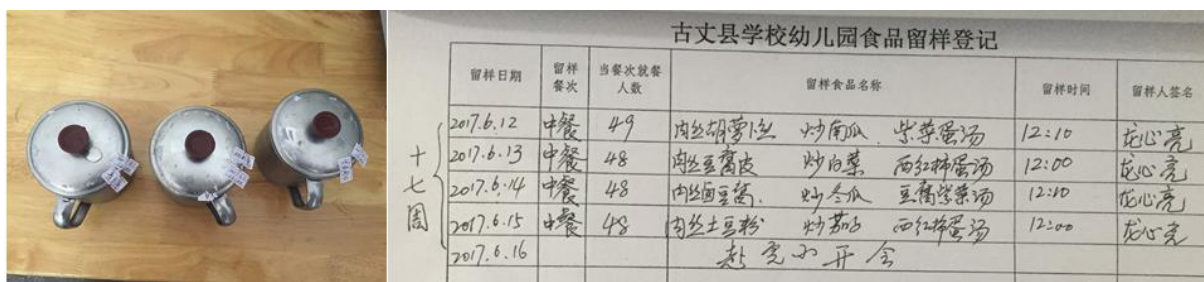 古丈县学校幼儿园食品留样登记
留样日期 留样餐次 当餐次就餐人数 留样食品名称 留样时间 留样人签名
十七周
2017.6.12 中餐 49 肉丝胡萝卜丝 炒南瓜 紫菜蛋汤 12:10 龙心亮
2017.6.13 中餐 48 肉丝豆腐皮 炒白菜 西红柿蛋汤 12:00 龙心亮
2017.6.14 中餐 48 肉丝卤豆腐. 炒冬瓜 豆腐紫菜汤 12:10 龙心亮
2017.6.15 中餐 48 肉丝土豆粉 炒茄子 西红柿蛋汤 12:00 龙心亮
2017.6.16 开会